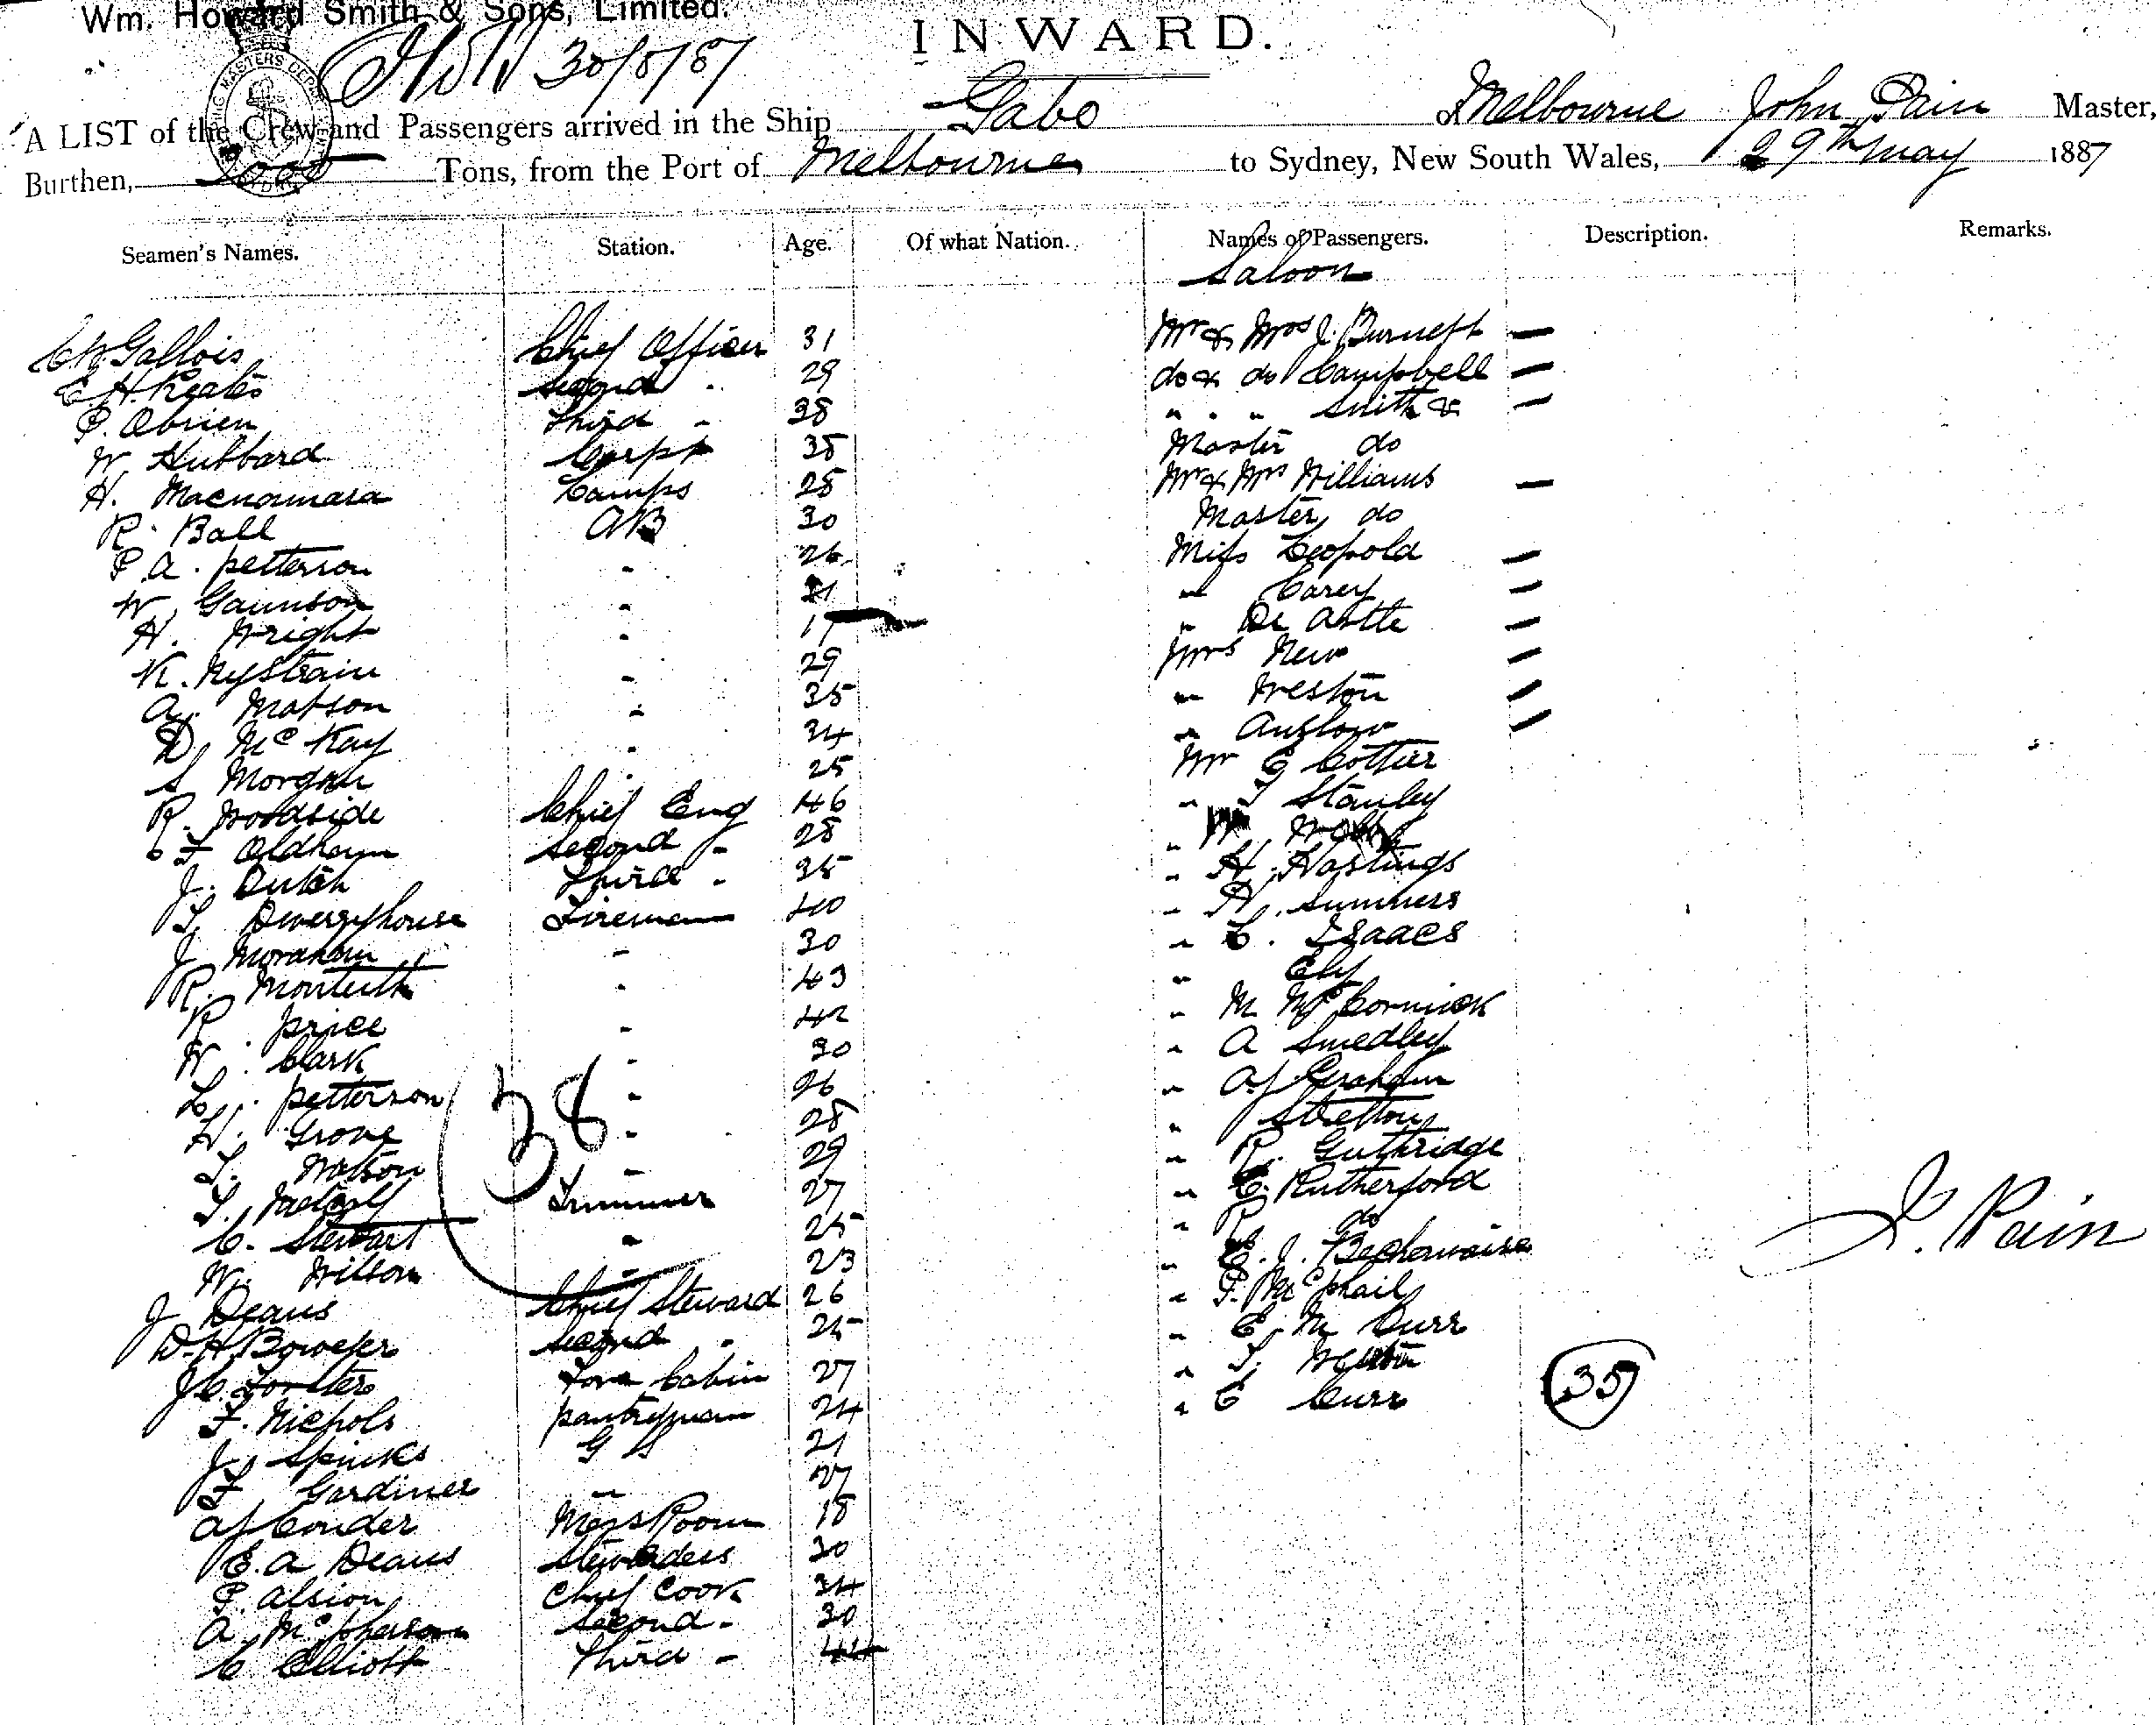 Wm. Howard Smith & Sons, Limited.
INWARD.
30/5/87
A LIST of the Crew and Passengers arrived in the Ship Gabo of Melbourne John Pain Master,
Burthen, 2000 Tons, from the Port of Melbourne to Sydney, New South Wales, 29th May 1887
Seamen's Names. Station. Age. Of what Nation. Names of Passengers. Description. Remarks.
Saloon
Gallois Chief Officer 31 Mr & Mrs J. Burnett —
E. H. Keates Second " 29 do & do Campbell —
P. Obrien Third " 38 " " " Smith & —
W. Hubbard Carpt 35 Master do
H. Macnamara Lamps 28 Mr & Mrs Williams —
R. Ball AB 30 Master do
P. A. petterson " 26 Miss Leopold —
W. Gaunson " 21 " Carey —
H. Wright " " De Astte —
K. Nystrain " 29 Mrs New —
A. Matson " 35 " Weston —
D. McKay " 34 " Anslow —
S Morgan " 25 Mr G Cottier
R. Woodside Chief Eng 46 " T Stanley
C F Oldham Second " 28
J. Dutch Third " 35 " H. Hastings
T. Dwerryhouse Fireman 40 " A. Summers
J. Moraham " 30 " C. Isaacs
R. Monteith " 43 " Ely
R. price " 42 " M McCormick
W. Clark " 30 " A Smedley
L. petterson " 26 " A J Graham
H. Grove " 28 " Stretton
T. Watson " 29 " R. Guthridge
T. Metcalf Trimmer 27 " E. Rutherford
C. Stewart " 25 " R do
W. Wilson " 23 " E. J. Bechervaise
J Deans Chief Steward 26 " P. McPhail
D. H. Boweyer Second " 25 " E. M Curr
J C Forster Fore Cabin 27 " T. Weston
F. Nichols pantryman 24 " E Curr
J. Spinks G S 21
F. Gardiner " 27
A J Conder Mess Room 18
E. A Deans Stewardess 30
P. Alsion Chief Cook 34
A. McPherson Second " 30
C Elliott Third " 44
38
35
J. Pain